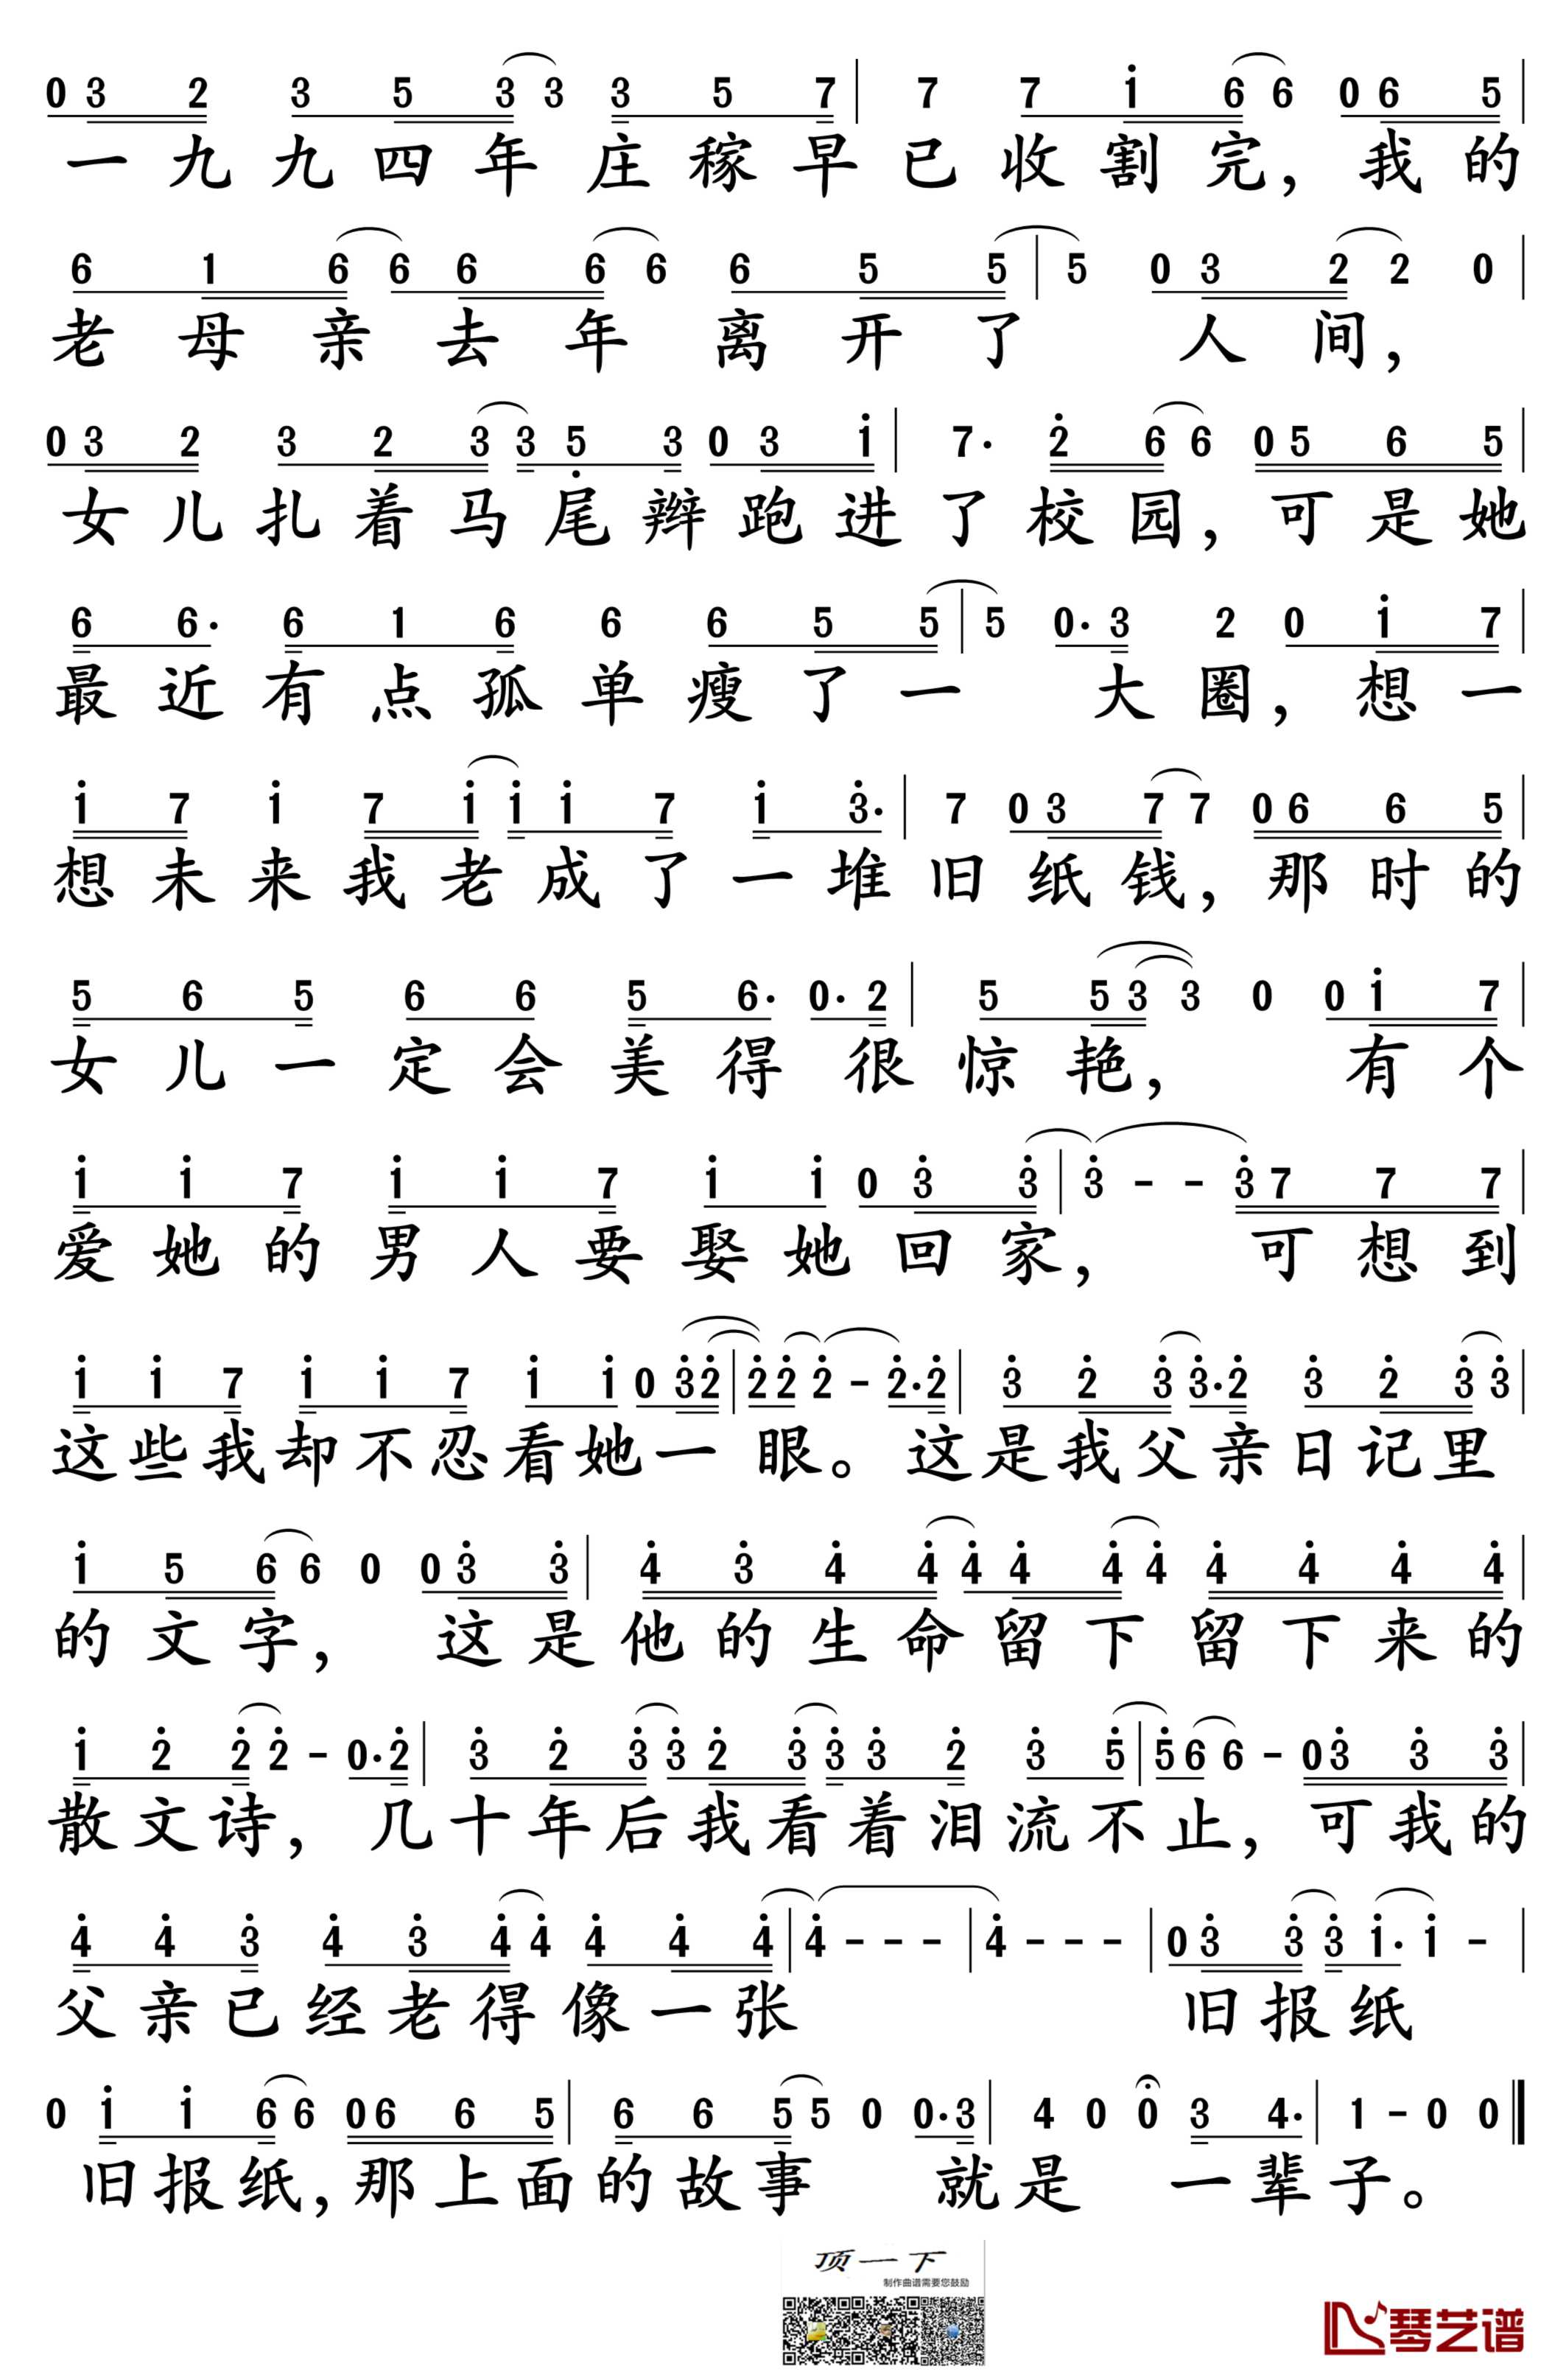 0 3 2 3 5 3 3 3 5 7 | 7 7 1̇ 6 6 0 6 5 |
一九九四年庄稼早已收割完，我的
6 1 6 6 6 6 6 6 5 5 | 5 0 3 2 2 0 |
老母亲去年离开了 人间，
0 3 2 3 2 3 3 5̣ 3 0 3 1̇ | 7· 2̇ 6 6 0 5 6 5 |
女儿扎着马尾辫跑进了校园，可是她
6 6· 6 1 6 6 6 5 5 | 5 0· 3 2 0 1̇ 7 |
最近有点孤单瘦了一 大圈，想一
1̇ 7 1̇ 7 1̇ 1̇ 1̇ 7 1̇ 3̇· | 7 0 3 7 7 0 6 6 5 |
想未来我老成了一堆旧纸钱，那时的
5 6 5 6 6 5 6· 0· 2 | 5 5 3 3 0 0 1̇ 7 |
女儿一定会美得很惊艳， 有个
1̇ 1̇ 7 1̇ 1̇ 7 1̇ 1̇ 0 3̇ 3̇ | 3̇ - - 3̇ 7 7 7 |
爱她的男人要娶她回家， 可想到
1̇ 1̇ 7 1̇ 1̇ 7 1̇ 1̇ 0 3̇ 2̇ | 2̇ 2̇ 2̇ - 2̇· 2̇ | 3̇ 2̇ 3̇ 3̇· 2̇ 3̇ 2̇ 3̇ 3̇ |
这些我却不忍看她一眼。这是我父亲日记里
1̇ 5 6 6 0 0 3̇ 3̇ | 4̇ 3̇ 4̇ 4̇ 4̇ 4̇ 4̇ 4̇ 4̇ 4̇ 4̇ 4̇ |
的文字， 这是他的生命留下留下来的
1̇ 2̇ 2̇ 2̇ - 0· 2̇ | 3̇ 2̇ 3̇ 3̇ 2̇ 3̇ 3̇ 3̇ 2̇ 3̇ 5̇ | 5̇ 6 6 - 0 3̇ 3̇ 3̇ |
散文诗，几十年后我看着泪流不止，可我的
4̇ 4̇ 3̇ 4̇ 3̇ 4̇ 4̇ 4̇ 4̇ 4̇ | 4̇ - - - | 4̇ - - - | 0 3̇ 3̇ 3̇ 1̇· 1̇ - |
父亲已经老得像一张 旧报纸
0 1̇ 1̇ 6 6 0 6 6 5 | 6 6 5 5 0 0· 3 | 4 0 0 3 4· | 1 - 0 0
旧报纸，那上面的故事 就是 一辈子。
顶一下
制作曲谱需要您鼓励
琴艺谱